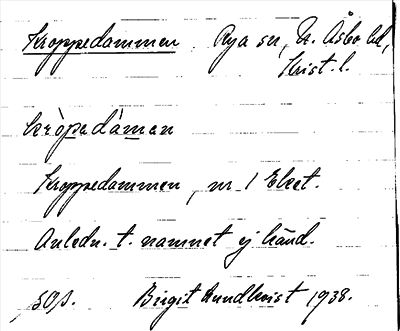 Kroppedammen Rya sn, N. Åsbo hd,
Krist. l.
kròpedàman
Kroppedammen, nr 1 Eket.
Anledn. t. namnet ej känd.
sös. Birgit Lundkvist 1938.